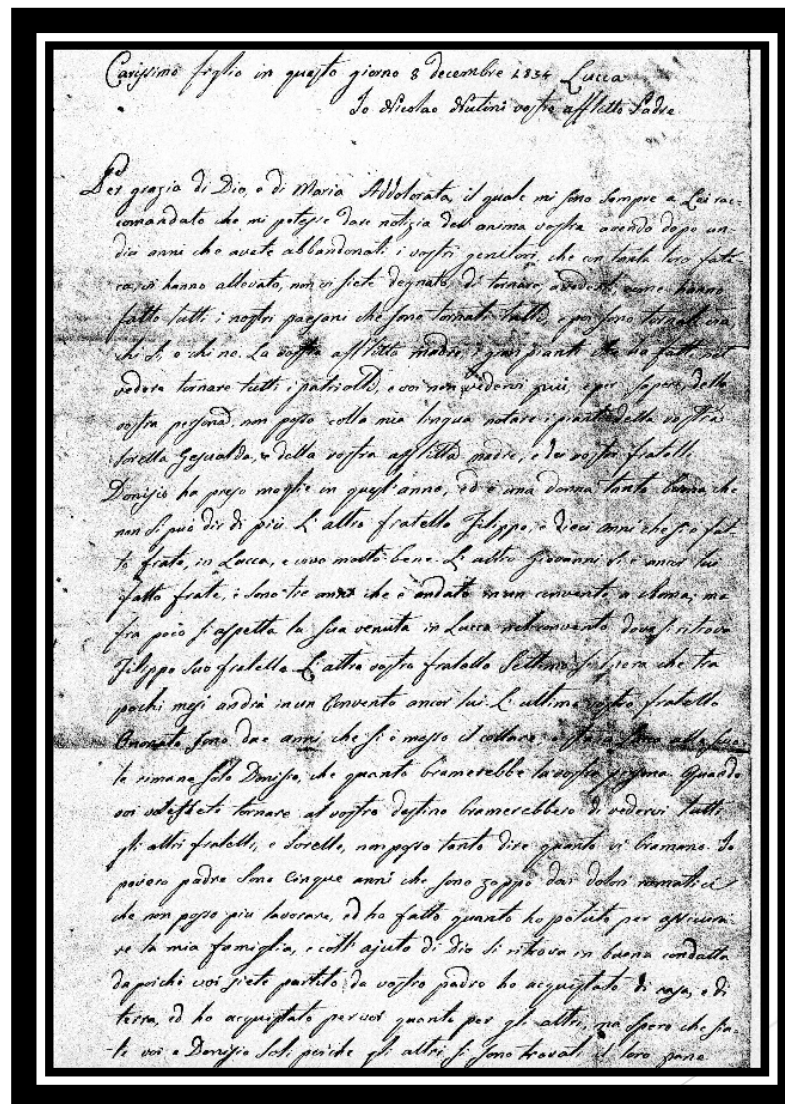 Carissimo figlio in questo giorno 8 decembre 1834 Lucca
Io Nicolao Nutini vostro afflitto Padre
Per grazia di Dio, e di Maria Addolorata, il quale mi sono sempre a Lei rac=
comandato che mi potesse dare notizia dell'anima vostra avendo dopo un=
dici anni che avete abbandonati i vostri genitori, che con tanta loro fati=
ca, vi hanno allevato, non vi siete degnato, di tornare, a vederci, come hanno
fatto tutti i nostri paesani che sono tornati tutti, e poi sono tornati via,
chi si, e chi no. La vostra afflitta madre, i gran pianti che ha fatti nel
vedere tornare tutti i patriotti, e voi non vedervi qui, e per sapere della
vostra persona, non posso colla mia lingua notare i pianti della vostra
sorella Gesualda, e della vostra afflitta madre, e dei vostri fratelli
Donisio ha preso moglie in quest'anno, ed è una donna tanto buona che
non si può dir di più. L'altro fratello Filippo, è dieci anni che si è fat=
to frate, in Lucca, e cova molto bene. L'altro Giovanni si è ancor lui
fatto frate, e sono tre anni che è andato in un convento a Roma, ma
fra poco si aspetta la sua venuta in Lucca nel convento dove si ritrova
Filippo suo fratello. L'altro vostro fratello Settimo si spera che tra
pochi mesi andrà in un Convento ancor lui. L'ultimo vostro fratello
Onorato sono due anni, che si è messo il collare, e
le rimane solo Donisio, che quanto bramerebbe la vostra persona. Quando
voi voleste tornare al vostro destino bramerebbero di vedervi tutti
gli altri fratelli, e sorelle, non posso tanto dire quanto vi bramano. Io
povero padre sono cinque anni che sono zoppo dai dolori romatici
che non posso più lavorare, ed ho fatto quanto ho potuto per assicura=
re la mia famiglia, e coll'ajuto di Dio si ritrova in buona condotta
da poichè voi siete partito da vostro padre ho acquistato di casa, e di
terra, ed ho acquistato per voi quanto per gli altri, ma spero che sia=
te voi e Donisio soli poichè gli altri si sono trovati il loro pane